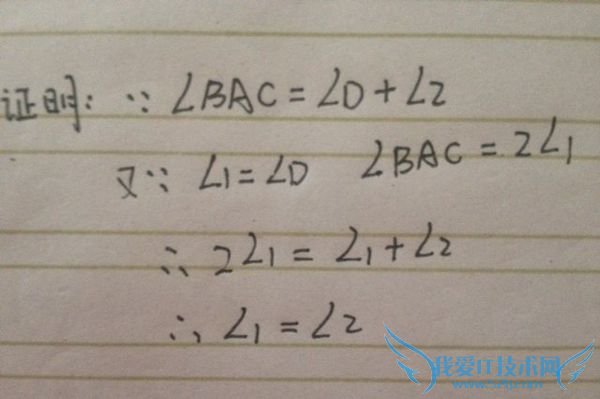 证明: ∵ ∠BAC = ∠D + ∠2
又∵ ∠1 = ∠D ∠BAC = 2∠1
∴ 2∠1 = ∠1 + ∠2
∴ ∠1 = ∠2
我爱IT技术网